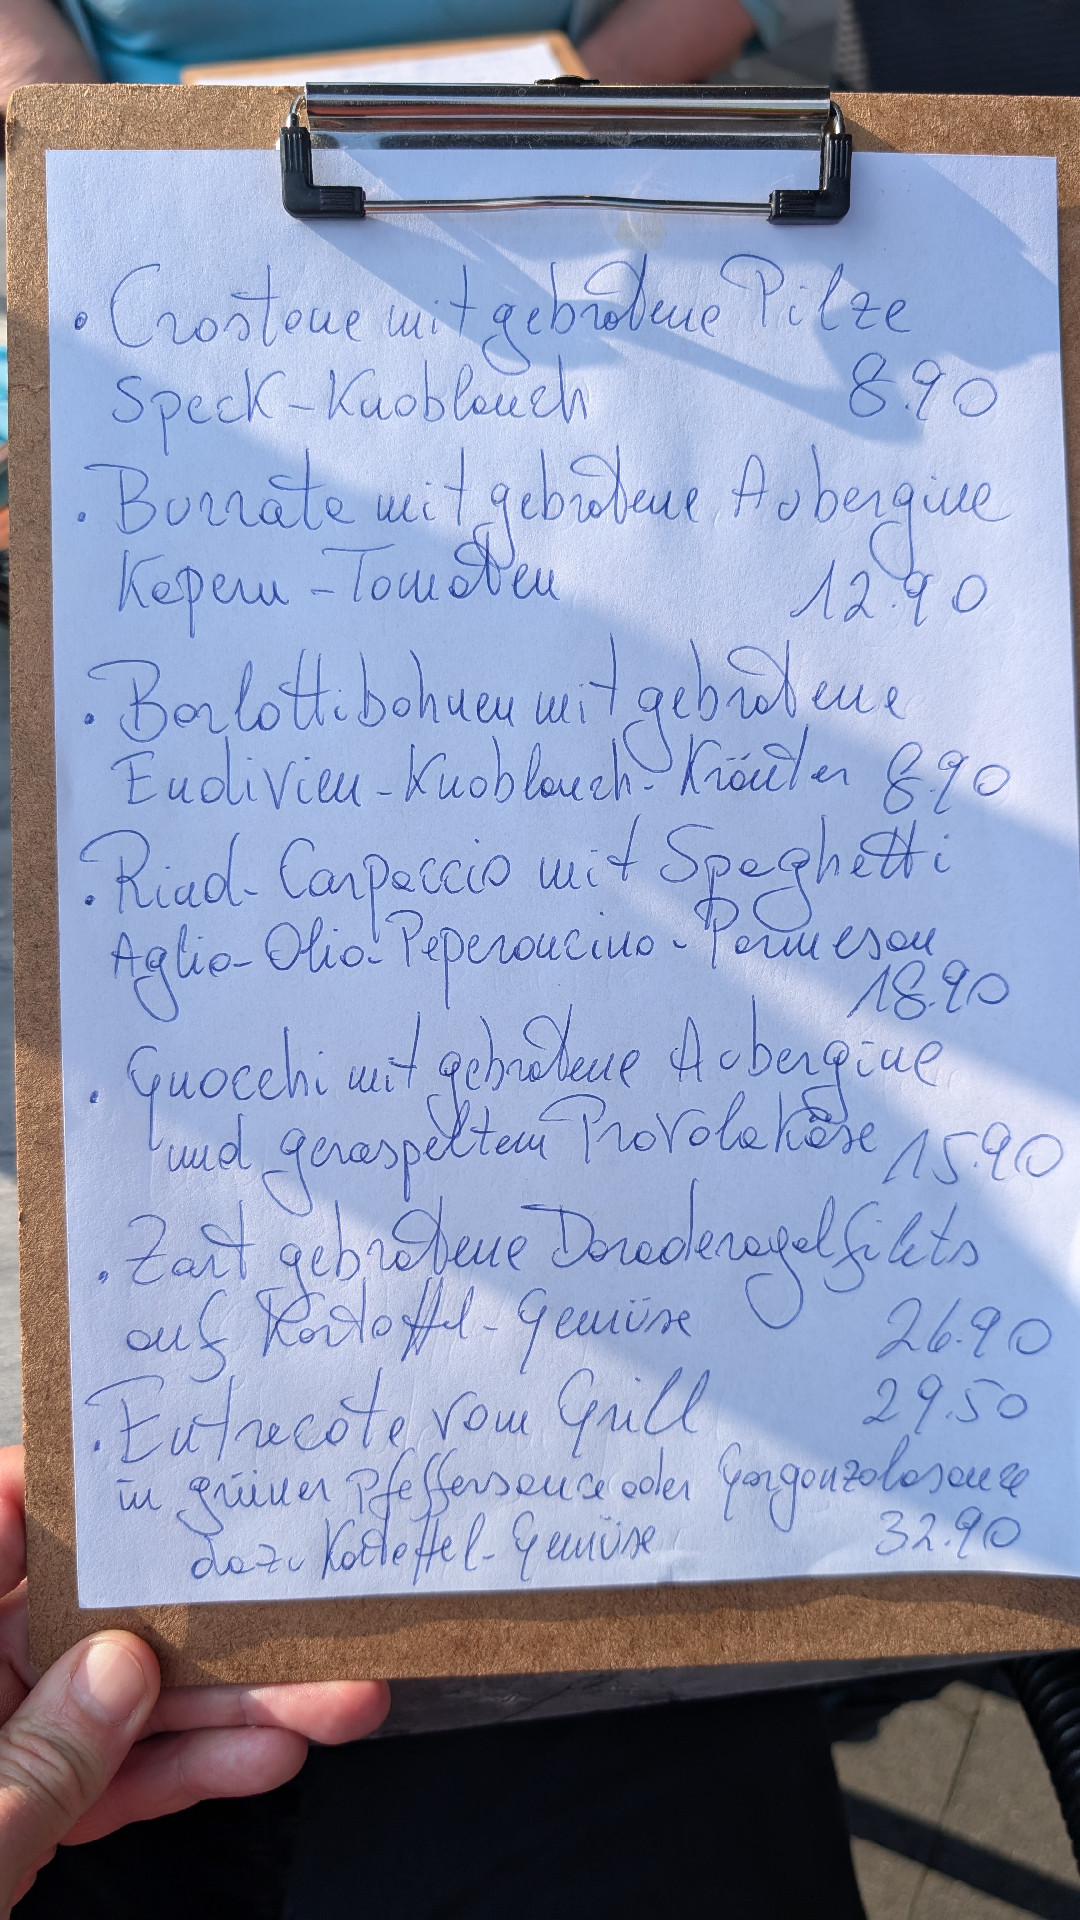 • Crostone mit gebratene Pilze
Speck-Knoblauch 8.90
• Burrata mit gebratene Aubergine
Kapern-Tomaten 12.90
• Borlottibohnen mit gebratene
Endivien-Knoblauch-Kräuter 8.90
• Rind-Carpaccio mit Spaghetti
Aglio-Olio-Peperoncino-Parmesan
18.90
• Gnocchi mit gebratene Aubergine
und geraspeltem Provolakäse 15.90
• Zart gebratene Doraderoyalfilets
auf Kartoffel-Gemüse 26.90
• Entrecôte vom Grill 29.50
in grüner Pfeffersauce oder Gorgonzolasauce
dazu Kartoffel-Gemüse 32.90